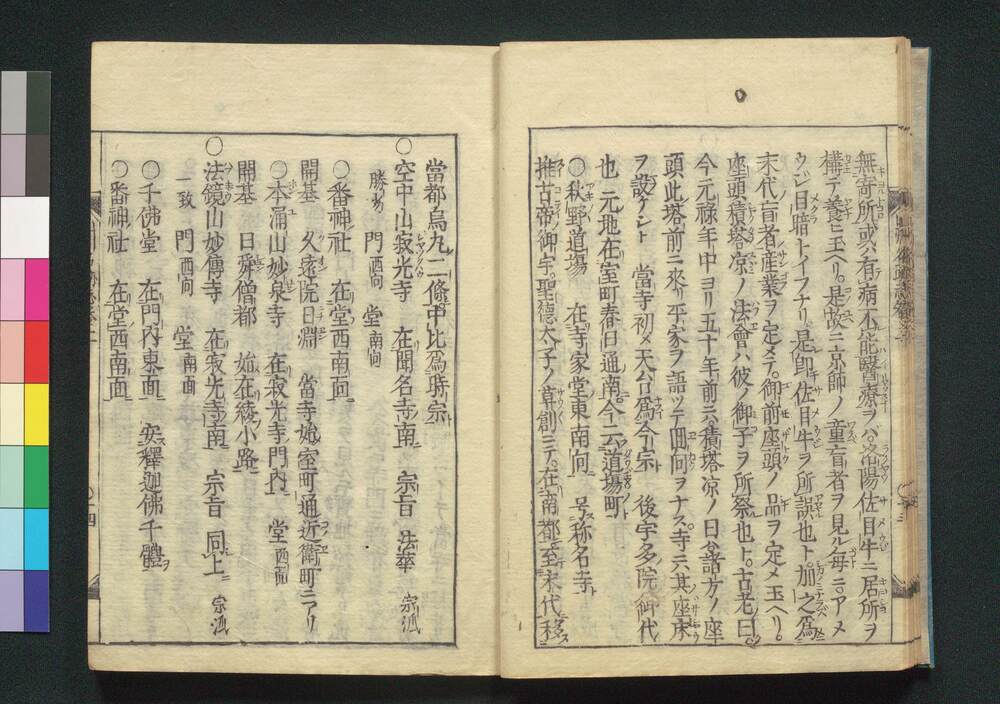 無寄所或有病不能醫療ヲハ洛陽佐目牛ニ居所ヲ
構テ養ヒ玉ヘリ是故ニ京師ノ童盲者ヲ見ル毎ニアメ
ウシ目暗トイフナリ是卽佐目牛ヲ所誤也ト加之爲
末代盲者産業ヲ定メテ御前座頭ノ品ヲ定メ玉ヘリ
座頭積塔凉ノ法會ハ彼ノ御子ヲ所祭也ト古老曰
今元祿年中ヨリ五十年前云積塔凉ノ日谷諸方ノ座
頭此塔前ニ來リ平家ヲ語ツテ囬向ヲナス寺云其座床
ヲ設ケシト 當寺初メ天台爲今宗 後宇多院御代
也 元地在室町春日通南今云道場町
○秋野道場 在寺家堂東南向 号称名寺
推古帝御宇聖德太子ノ草創ニテ在南都至末代移
當都烏丸二條中比爲時宗
○空中山寂光寺 在聞名寺南 宗旨 法華 宗派
勝劣 門西向 堂南向
○番神社 在堂西南面
○本涌山妙泉寺 在寂光寺門内 堂西面
開基 久遠院日淵 當寺始室町通近衛町ニアリ
開基 日舜僧都 始在綾小路
○法鏡山妙傳寺 在寂光寺南 宗旨 同上 宗派
一致 門西向 堂南面
○千佛堂 在門内東面 安釋迦佛千體
○番神社 在堂西南面